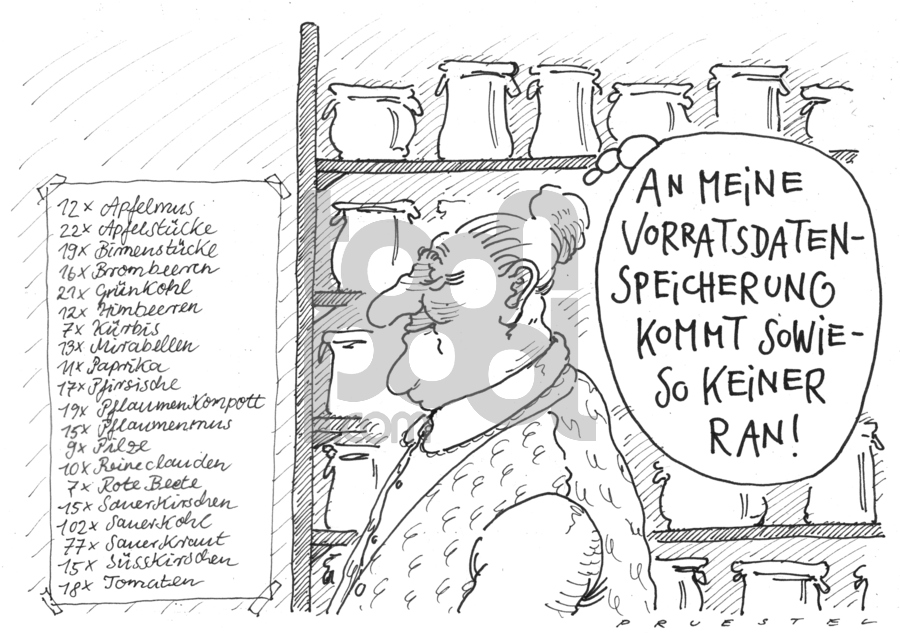 12x Apfelmus
22x Apfelstücke
19x Birnenstücke
16x Brombeeren
21x Grünkohl
12x Himbeeren
7x Kürbis
13x Mirabellen
11x Paprika
17x Pfirsische
19x Pflaumenkompott
15x Pflaumenmus
9x Pilze
10x Reineclauden
7x Rote Beete
15x Sauerkirschen
102x Sauerkohl
77x Sauerkraut
15x Süsskirschen
18x Tomaten
AN MEINE
VORRATSDATEN-
SPEICHERUNG
KOMMT SOWIE-
SO KEINER
RAN!
toonpool
com
PRUESTEL